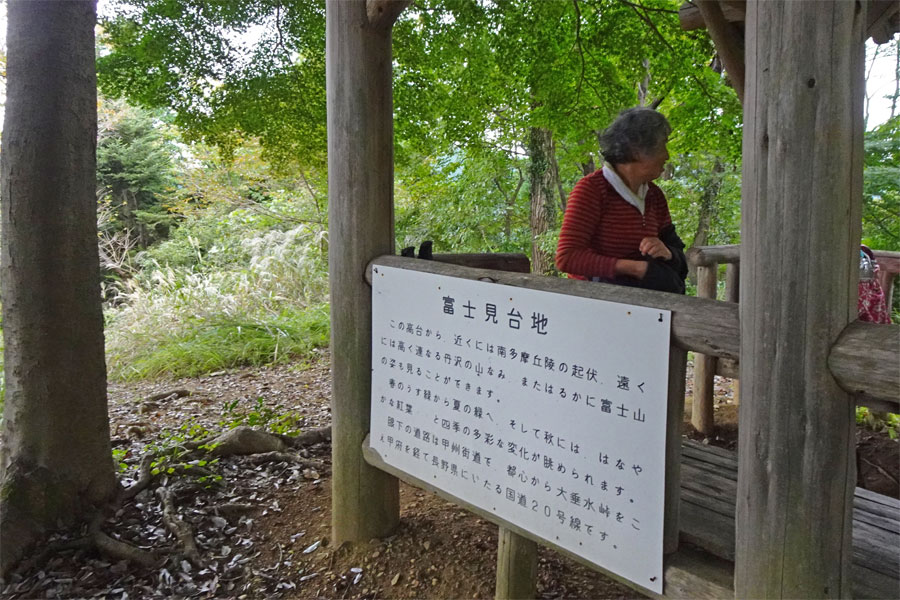 富士見台地
この高台から、近くには南多摩丘陵の起伏、遠く
には高く連なる丹沢の山なみ、またはるかに富士山
の姿も見ることができます。
春のうす緑から夏の緑へ、そして秋には、はなや
かな紅葉、と四季の多彩な変化が眺められます。
眼下の道路は甲州街道で、都心から大垂水峠をこ
え甲府を経て長野県にいたる国道20号線です。